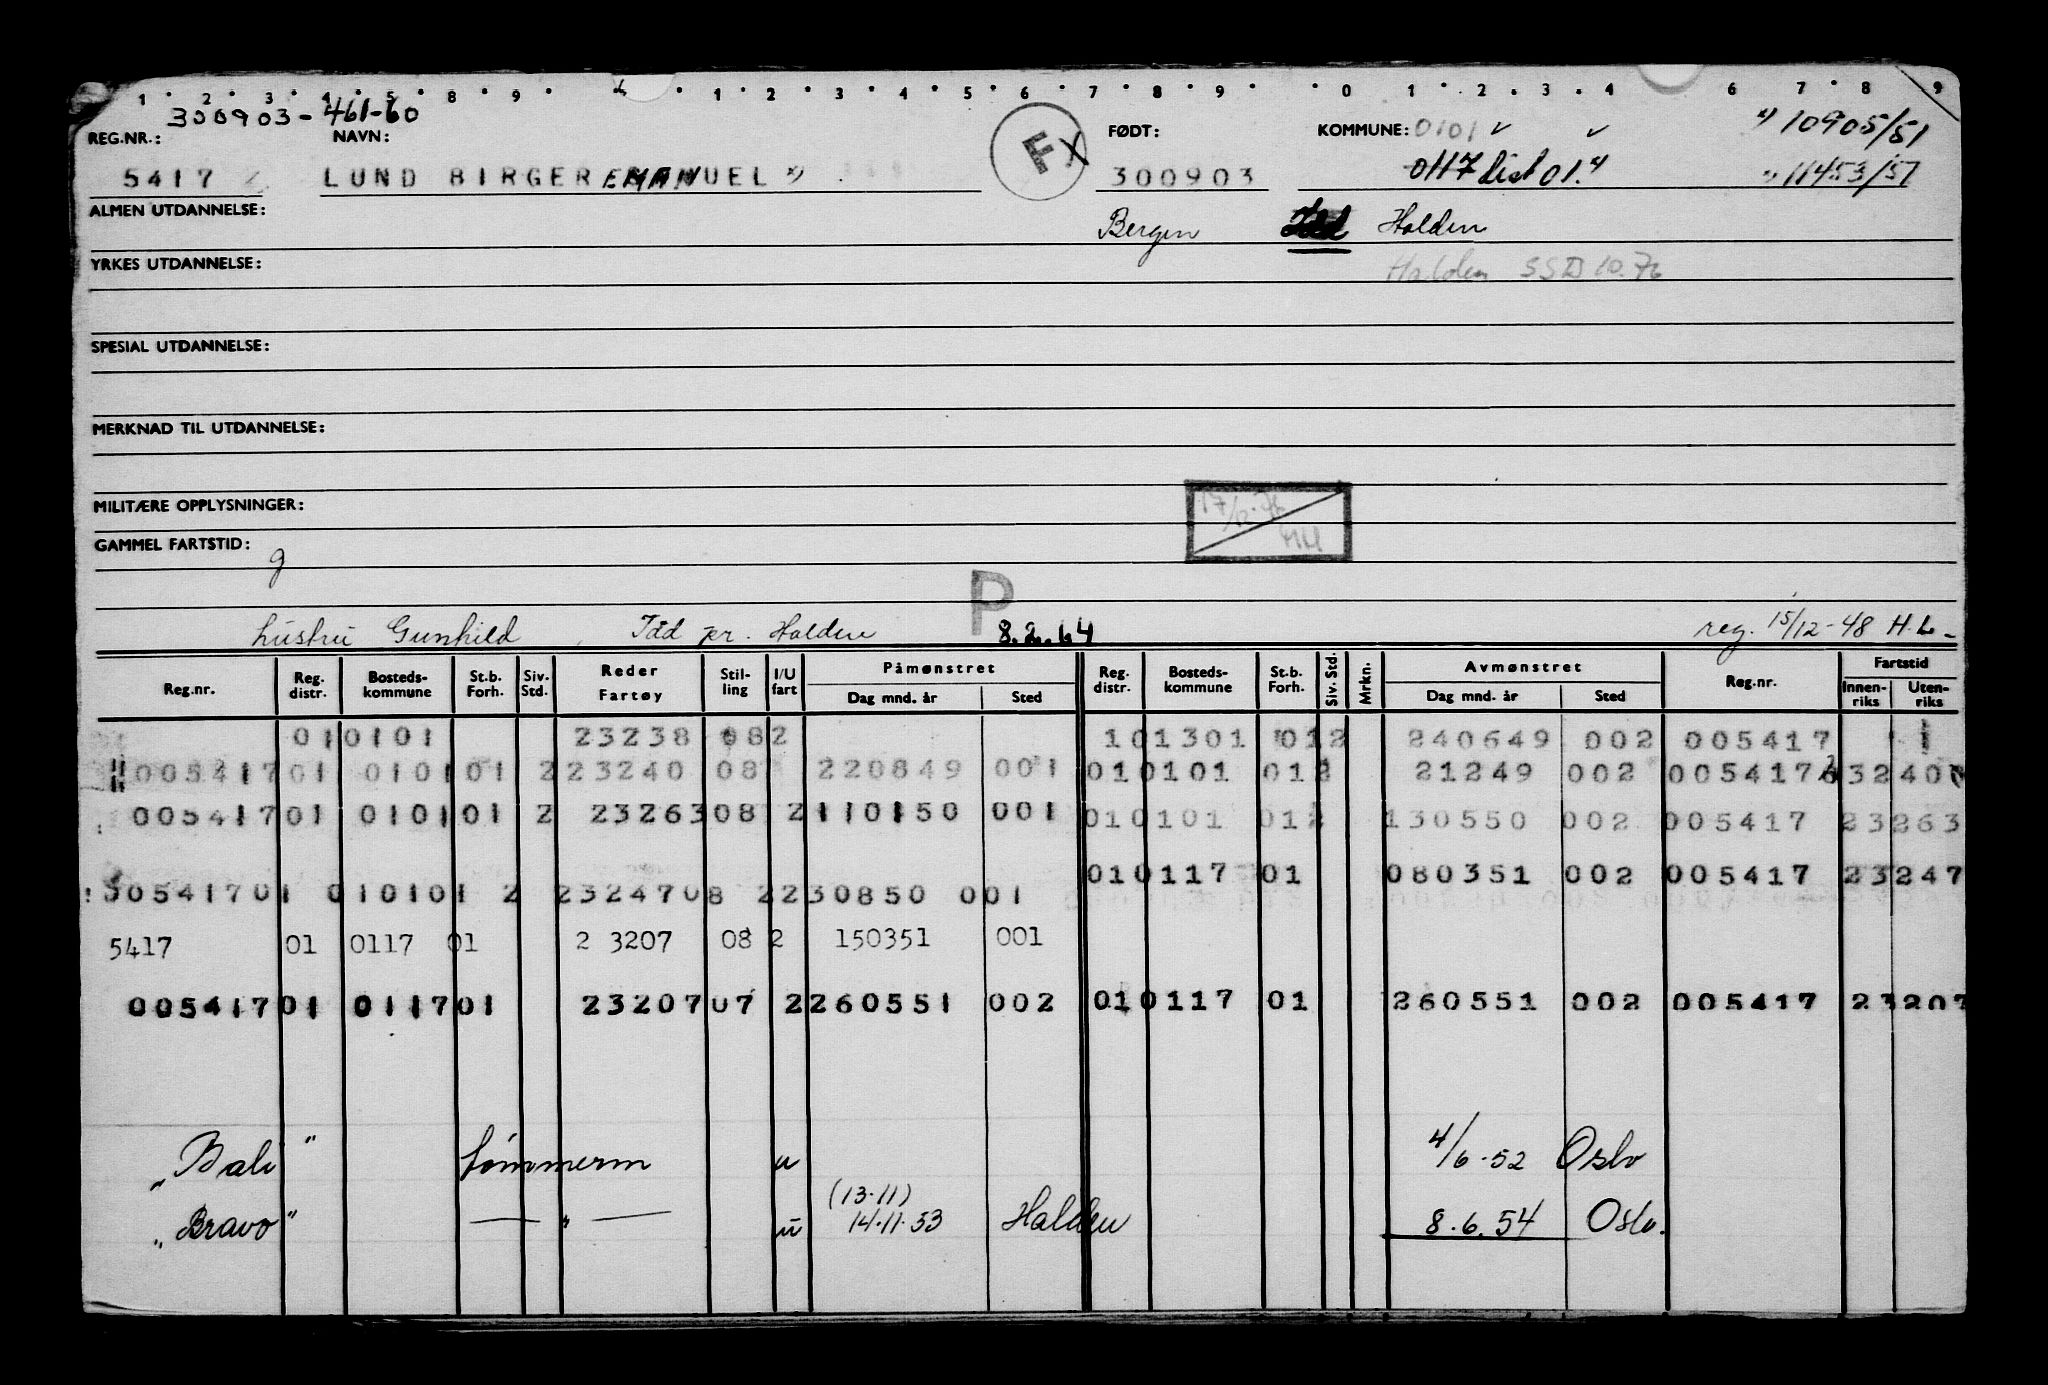 1 2 3 4 5 8 9 1 2 3 4 5 6 7 8 9 0 1 2 3 4 6 7 8 9
300903-461-60
REG.NR.: NAVN: F X FØDT: KOMMUNE: 0101 10905/51
5417 LUND BIRGER EMANUEL 300903 0117 dist 01. 11453/51
ALMEN UTDANNELSE: Bergen Idd Halden
YRKES UTDANNELSE: Halden SSD 10.76
SPESIAL UTDANNELSE:
MERKNAD TIL UTDANNELSE:
MILITÆRE OPPLYSNINGER: 17/12-76
GAMMEL FARTSTID: HH
g
P
hustru Gunhild, Idd pr. Halden 8.2.64 reg. 15/12-48 H.L-
Reg.nr. Reg. distr. Bosteds-kommune St.b. Forh. Siv. Std. Reder Fartøy Stil-ling I/U fart Påmønstret Dag mnd. år Sted Reg. distr. Bosteds-kommune St.b. Forh. Siv. Std. Mrkn. Avmønstret Dag mnd. år Sted Reg.nr. Fartstid Innen-riks Uten-riks
010101 23238 082 101301 012 240649 002 005417 1
00541701 010101 223240 08 220849 001 010101 012 21249 002 005417 63240
00541701 010101 2 2326308 2110150 001 010101 012 130550 002 005417 23263
010117 01 080351 002 005417 23247
00541701 010101 2 2324708 2230850 001
5417 01 0117 01 2 3207 08 2 150351 001
00541701 011701 2320707 2260551 002 010117 01 260551 002 005417 23207
„Bali" tømmerm u 4/6-52 Oslo
(13-11)
„Bravo" — „ — u 14.11.53 Halden 8.6.54 Oslo.